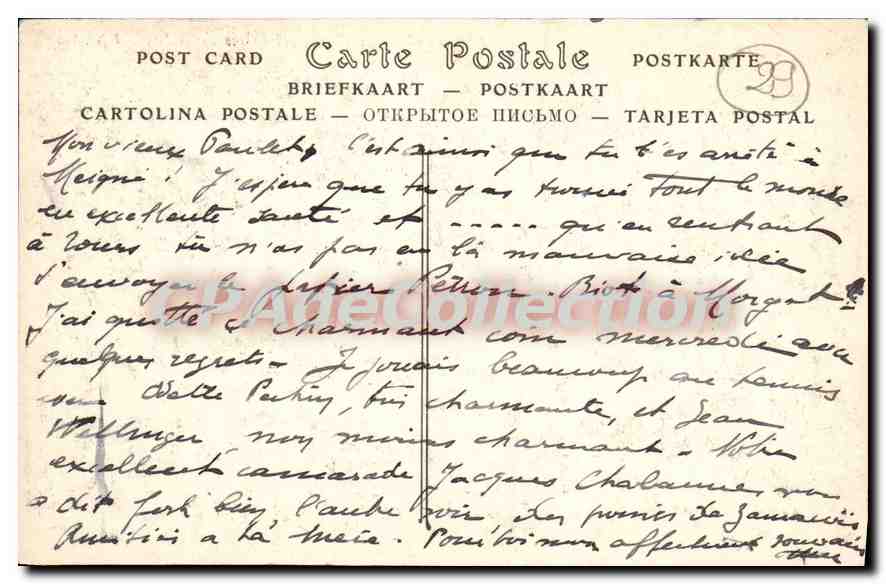 POST CARD Carte Postale POSTKARTE
29
BRIEFKAART — POSTKAART
CARTOLINA POSTALE — ОТКРЫТОЕ ПИСЬМО — TARJETA POSTAL
Mon vieux Paulet, c'est ainsi que tu t'es arrêté à
! J'espère que tu y as trouvé tout le monde
en excellente santé et ----- qu'en rentrant
à Tours tu n'as pas eu la mauvaise idée
d'envoyer le Pétron. Biot à Morgat
J'ai quitté ce charmant coin mercredi avec
quelques regrets. Je jouais beaucoup au tennis
avec Odette, très charmante, et Jean
non moins charmant. Notre
excellent camarade Jacques Chabannes nous
a dit fort bien l'autre soir des poésies de Zamacoïs
Amitiés à ta Mère. Pour toi mon affectueux souvenir
CPAdeCollection